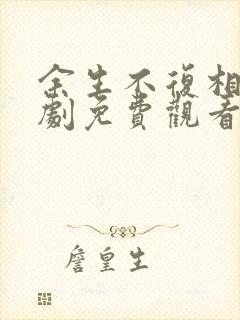 余生不復相
劇免費觀看
詹皇生